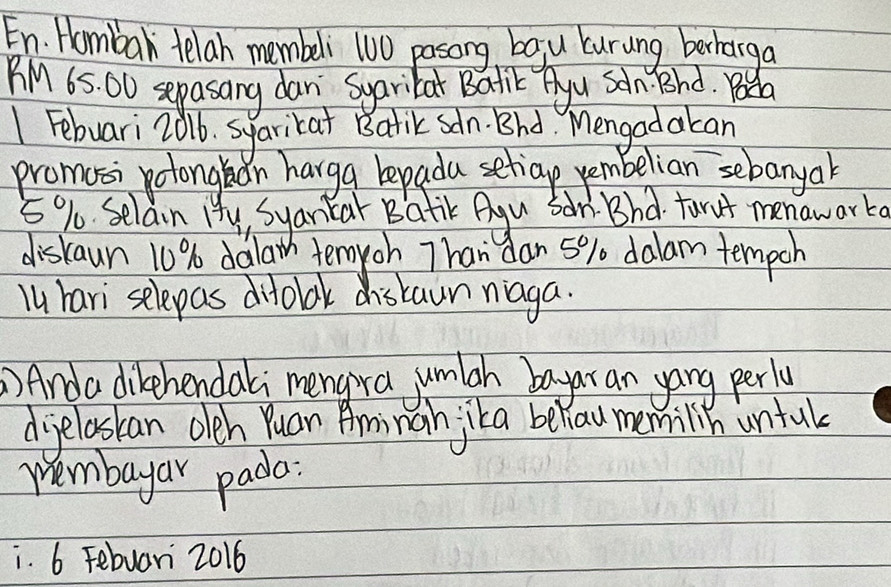 En. Hambali telah membeli 100 pasang baju kurung berharga
RM 65.00 sepasang dari Syarikat Batik Ayu Sdn. Bhd. Pada
1 Febuari 2016. Syarikat Batik Sdn. Bhd. Mengadakan
promosi potongan harga kepada setiap pembelian sebanyak
5%. Selain itu, Syarikat Batik Ayu Sdn. Bhd. turut menawarka
diskaun 10% dalam tempoh 7 hari dan 5% dalam tempoh
14 hari selepas ditolak diskaun niaga.
a) Anda dikehendaki mengira jumlah bayaran yang perlu
dijelaskan oleh Puan Aminah jika beliau memilih untuk
membayar pada:
i. 6 Febuari 2016